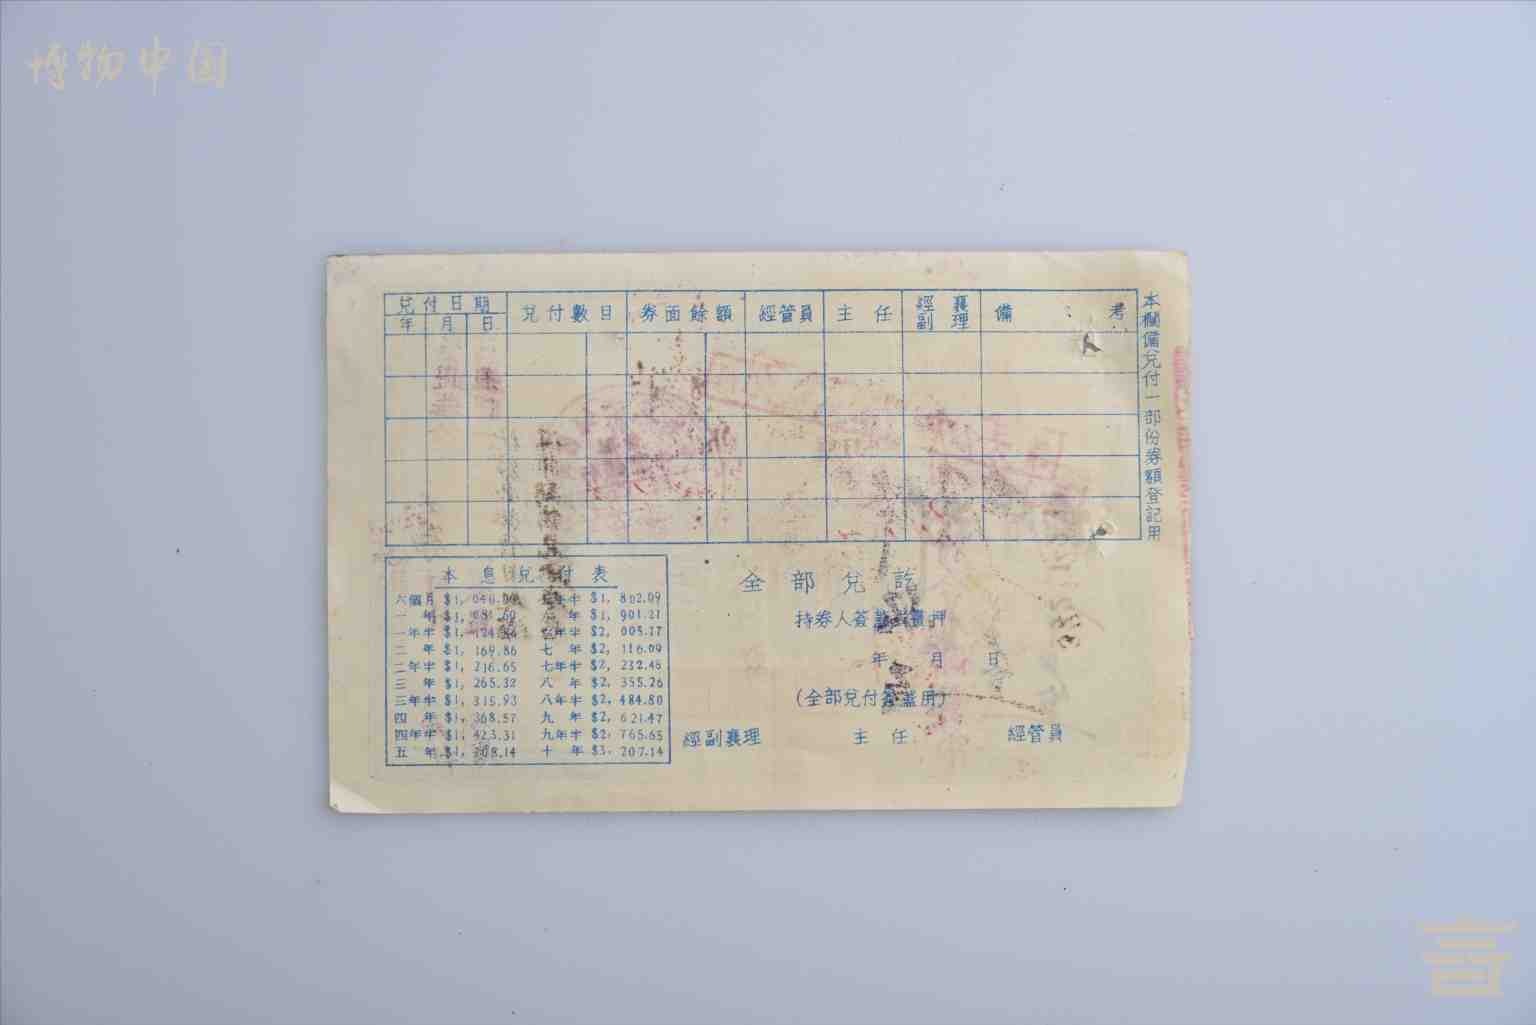 博物中国
兑付日期 兑付數目 券面餘額 經管員 主任 經副襄理 備考
年 月 日
本欄備兑付一部份券額登記用
本息兑付表
六個月 $1,040.00 年半 $1,802.09
一年 $1,081.60 年 $1,901.21
一年半 $1,124.86 年半 $2,005.77
二年 $1,169.86 七年 $2,116.09
二年半 $1,216.65 七年半 $2,232.48
三年 $1,265.32 八年 $2,355.26
三年半 $1,315.93 八年半 $2,484.80
四年 $1,368.57 九年 $2,621.47
四年半 $1,423.31 九年半 $2,765.65
五年 $1, 08.14 十年 $3,207.14
全部兑訖
持券人簽 押
年 月 日
(全部兑付簽蓋用)
經副襄理 主任 經管員